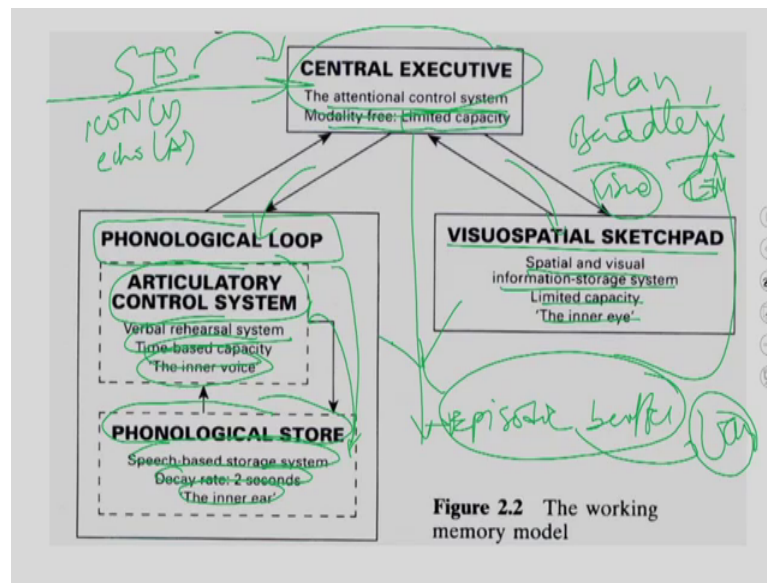 STS
ICON (V)
echo (A)
CENTRAL EXECUTIVE
The attentional control system
Modality-free: Limited capacity
Alan
Baddley's
PHONOLOGICAL LOOP
ARTICULATORY
CONTROL SYSTEM
Verbal rehearsal system
Time-based capacity
'The inner voice'
PHONOLOGICAL STORE
Speech-based storage system
Decay rate: 2 seconds
'The inner ear'
VISUOSPATIAL SKETCHPAD
Spatial and visual
information-storage system
Limited capacity
'The inner eye'
Episodic buffer
Figure 2.2 The working
memory model